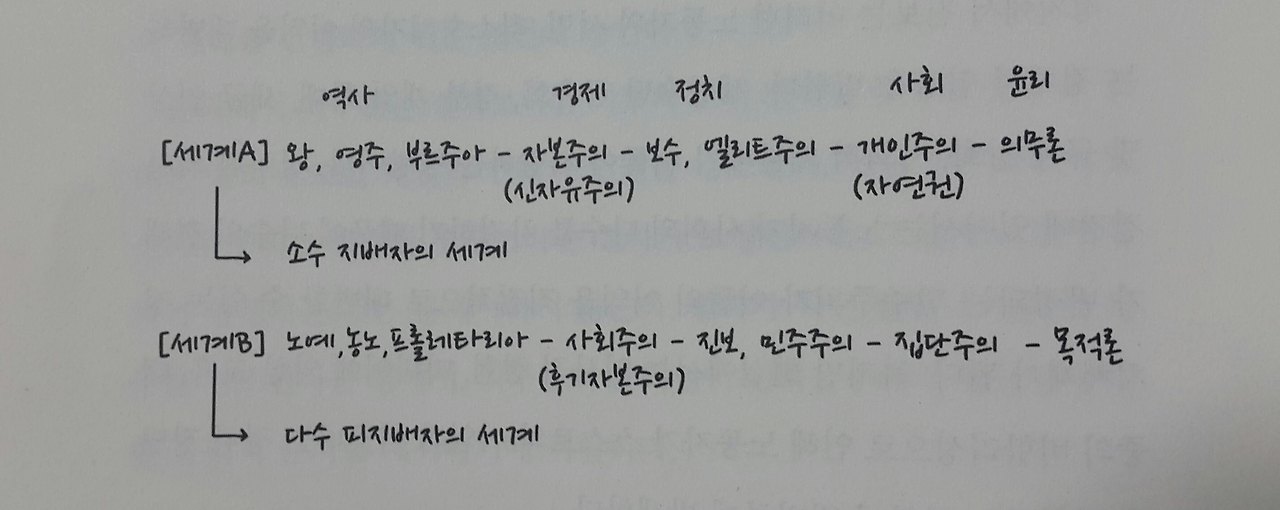 역사 경제 정치 사회 윤리
[세계A] 왕, 영주, 부르주아 - 자본주의 - 보수, 엘리트주의 - 개인주의 - 의무론
(신자유주의) (자연권)
소수 지배자의 세계
[세계B] 노예, 농노, 프롤레타리아 - 사회주의 - 진보, 민주주의 - 집단주의 - 목적론
(후기자본주의)
다수 피지배자의 세계